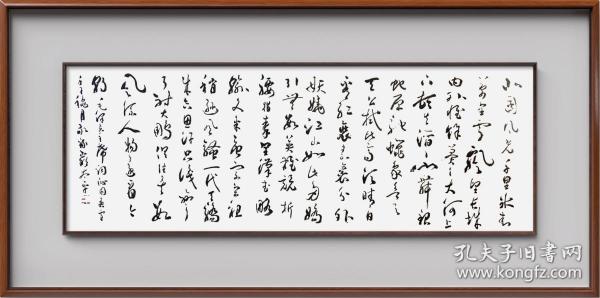 北国风光千里冰封
万里雪飘望长城
内外惟馀莽莽大河上
下顿失滔滔山舞银
蛇原驰蜡象欲与
天公试比高须晴日
看红装素裹分外
妖娆江山如此多娇
引无数英雄竞折
腰惜秦皇汉武略
输文采唐宗宋祖
稍逊风骚一代天骄
成吉思汗只识弯弓
射大雕俱往矣数
风流人物还看今
朝毛泽东主席词沁园春雪
孔夫子旧书网
www.kongfz.com